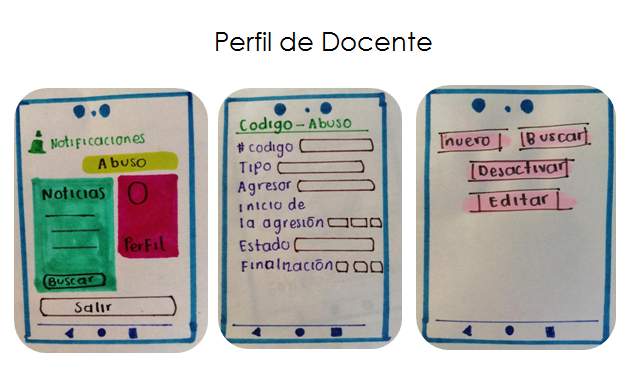 Perfil de Docente
Notificaciones
Abuso
Noticias
Perfil
Buscar
Salir
Codigo - Abuso
# codigo
Tipo
Agresor
inicio de
la agresión
Estado
Finalización
nuevo
Buscar
Desactivar
Editar